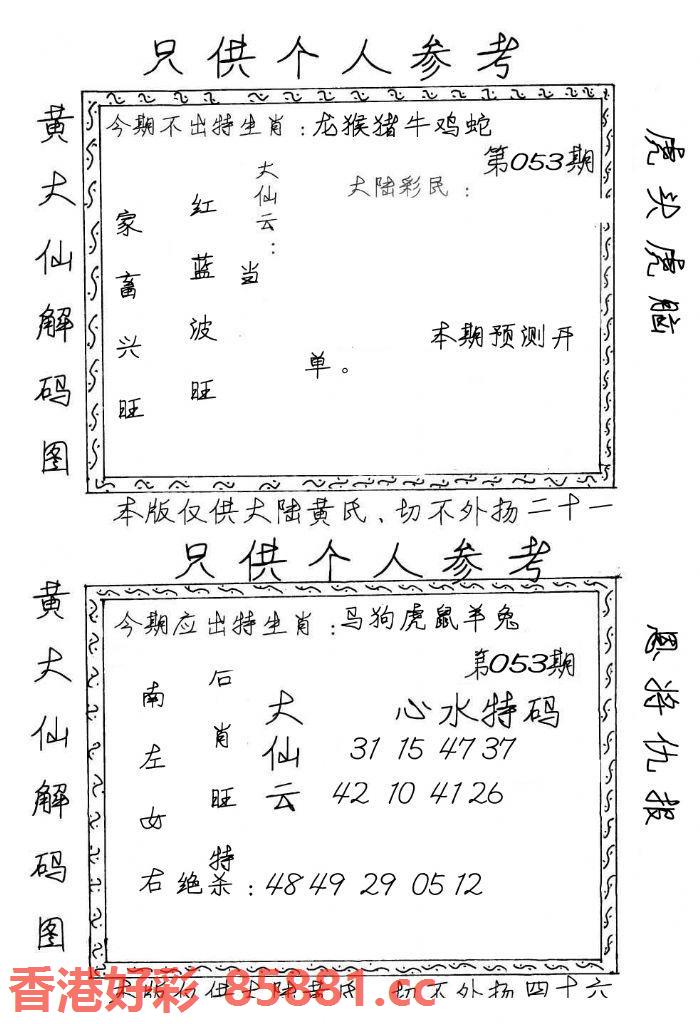 只供个人参考
黄大仙解码图
今期不出特生肖：龙猴猪牛鸡蛇
第053期
大仙云：
大陆彩民：
家畜兴旺
红蓝波旺
当
本期预测开
单。
虎头虎脑
本版仅供大陆黄氏、切不外扬二十一
只供个人参考
黄大仙解码图
今期应出特生肖：马狗虎鼠羊兔
第053期
南左女右
后肖旺特
大仙云
心水特码
31 15 47 37
42 10 41 26
绝杀：48 49 29 05 12
恩将仇报
本版仅供大陆黄氏 切不外扬四十六
香港好彩 85881.cc